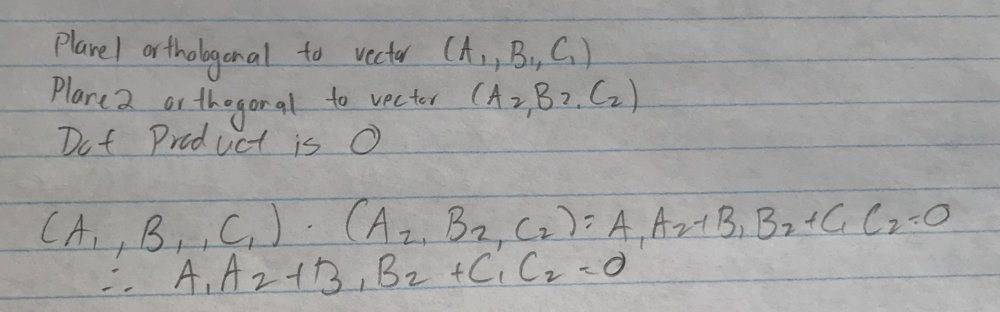 Plane1 orthobgonal to vector (A₁, B₁, C₁)
Plane2 orthogonal to vector (A₂, B₂, C₂)
Dot Product is 0
(A₁, B₁, C₁) · (A₂, B₂, C₂) = A₁A₂ + B₁B₂ + C₁C₂ = 0
∴ A₁A₂ + B₁B₂ + C₁C₂ = 0